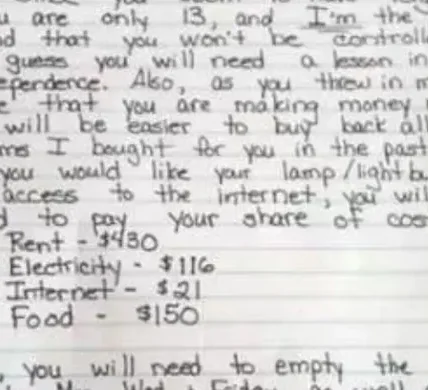 u are only 13, and I'm the
d that you won't be controll
guess you will need a lesson in
ependence. Also, as you threw in m
e that you are making money
will be easier to buy back all
mes I bought for you in the past
you would like your lamp/light bu
access to the internet, you wil
d to pay your share of cos
Rent - $430
Electricity - $116
Internet - $21
Food - $150
, you will need to empty the